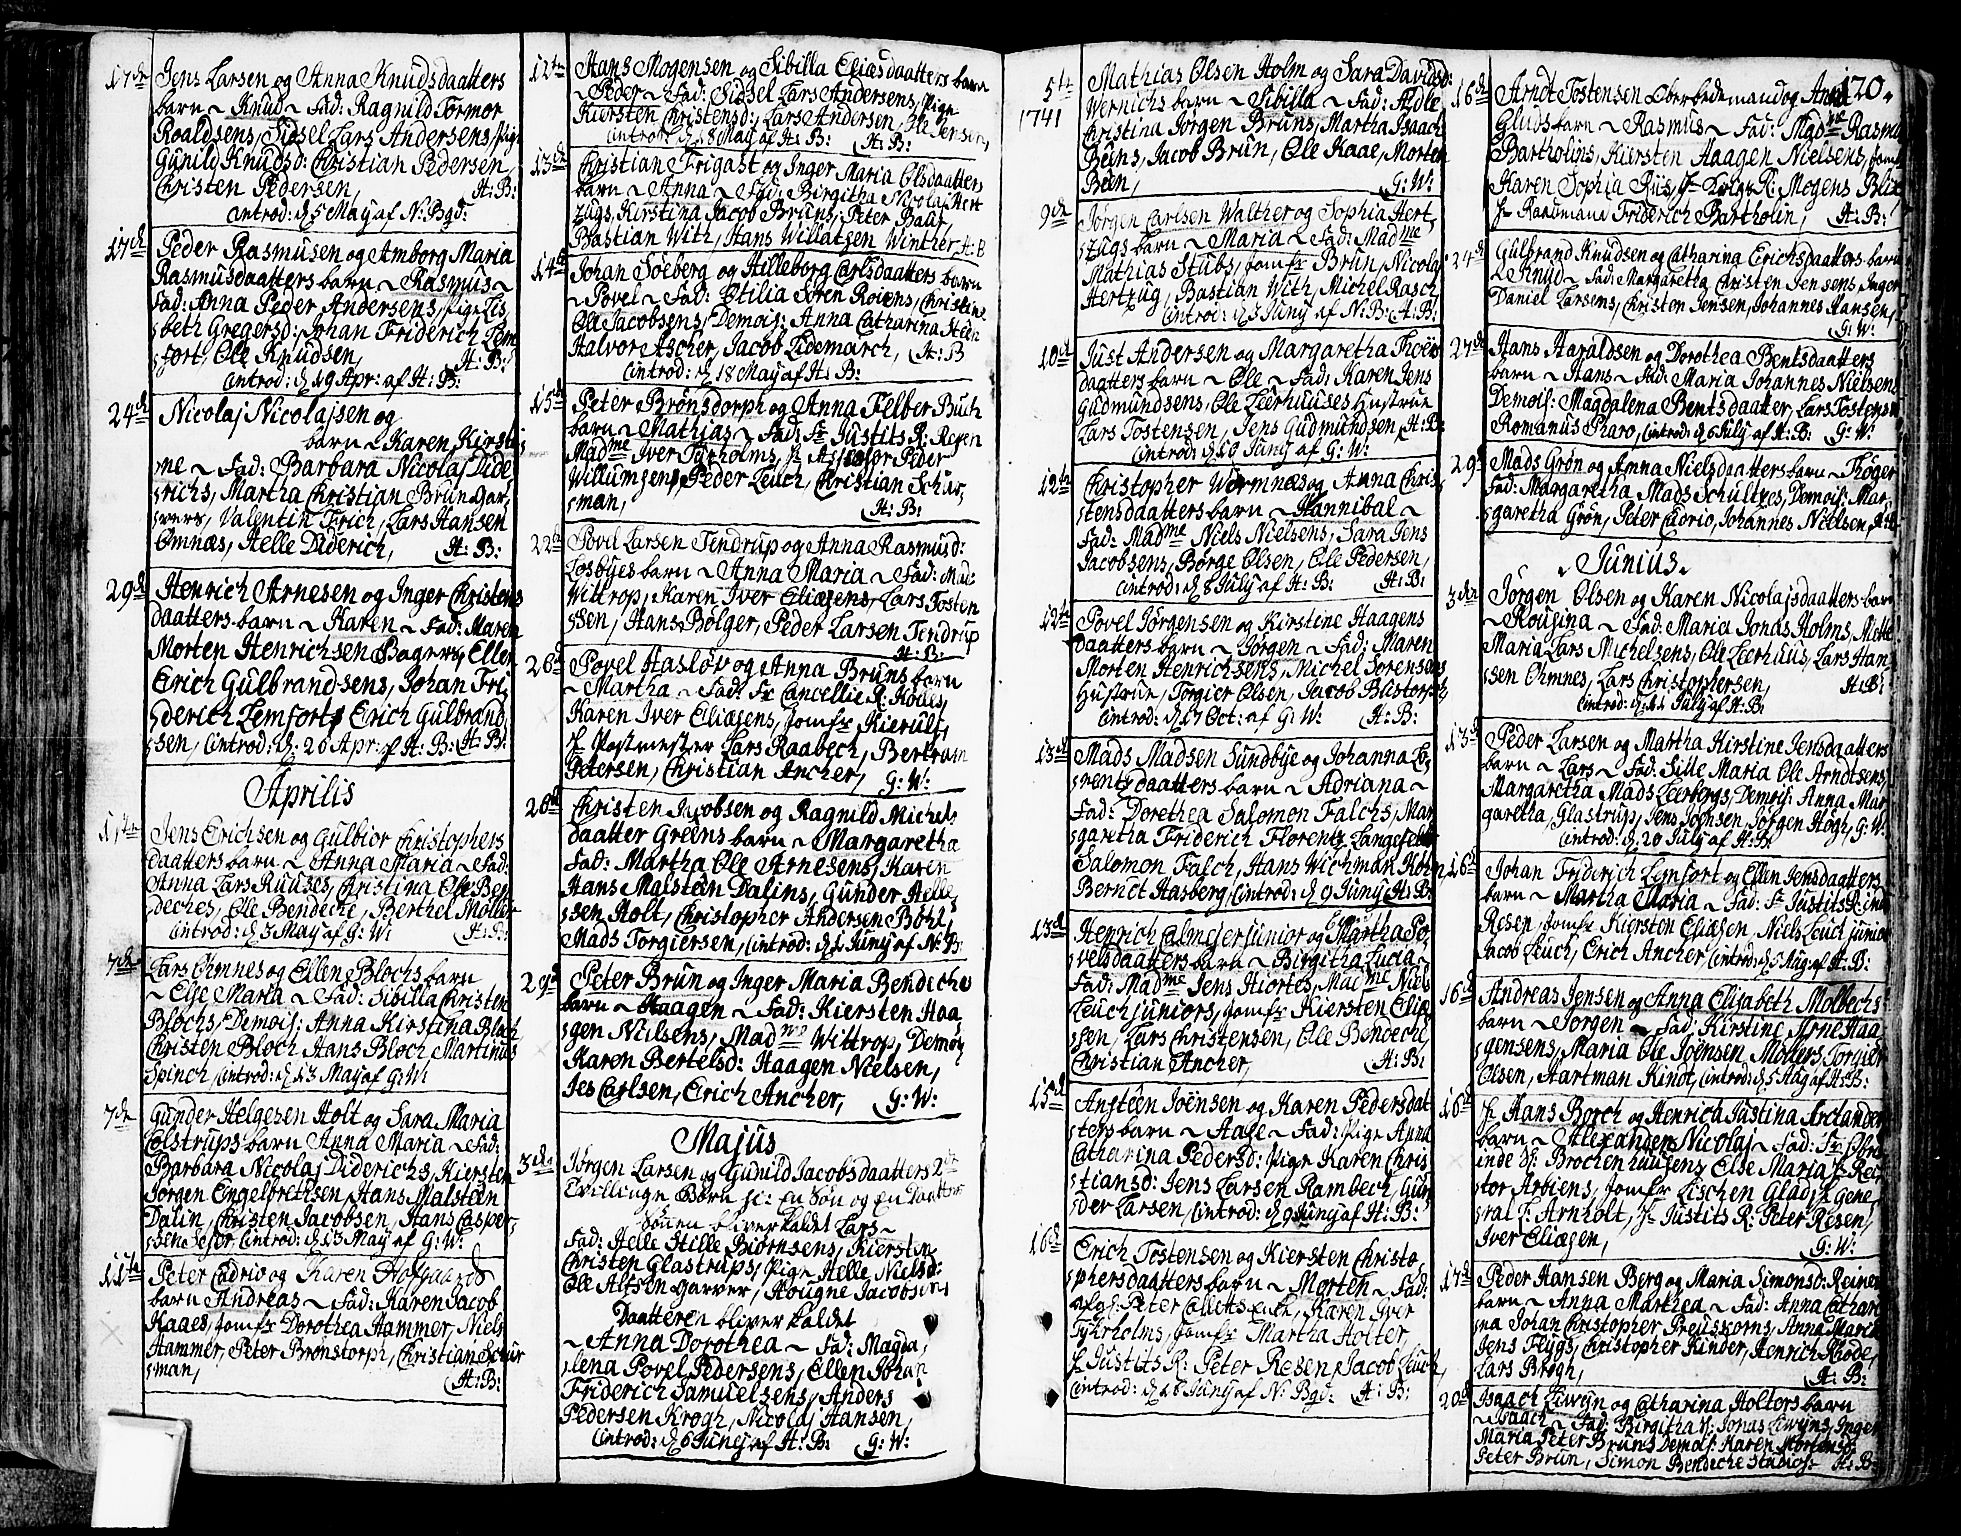 17de Jens Larsen og Anna Knudsdaatters
barn ~ Knud ~ Fad: Ragnild Tormor
Roaldsens, Sidsel Lars Andersens, Pige
Gunild Knudsd: Christian Pedersen,
Christen Pedersen, H: B:
introd: d 5 May af N: Bgd:
17de Peder Rasmusen og Amborg Maria
Rasmusdaatters barn ~ Rasmus ~
Fad: Anna Peder Andersens, Pige Lis
beth Gregersd: Johan Friderich Lem
fort, Ole Knudsen, H: B:
introd: d 19 Apr: af H: B:
24de Nicolaj Nicolajsen og
barn ~ Karen Kirsti
ne ~ Fad: Barbara Nicolaj Dide
richs, Martha Christian Brun Gar
vers, Valentin Frich, Lars Hansen
Omnæs, Helle Diderich, H: B:
29de Henrich Arnesen og Inger Christens
daatters barn ~ Karen ~ Fad: Maren
Morten Henrichsen Bagers, Ellen
Erich Gulbrandsens, Johan Fri
derich Lemfort, Erich Gulbrand
sen, introd: d: 26 Apr: af H: B: H: B:
Aprilis
Jens Erichsen og Gulbior Christophers
daatters barn ~ Anna Maria ~ Fad:
Anna Lars Ruuses, Christina Ole Ben
deches, Ole Bendeche, Berthel Møller
introd: d 3 May af G: W: H: B:
7de Lars Omnes og Ellen Blochs barn
~ Else Maria ~ Fad: Sibilla Christen
Blochs, Demois: Anna Kirstina Bloch
Christen Bloch Hans Bloch Martinus
Spinch, introd: d 13 May af G: W:
7de Gunder Helgesen Holt og Sara Maria
Colstrups barn Anna Maria ~ Fad:
Barbara Nicolaj Diderichs, Kiersten
Jørgen Engelbrethsen, Hans Malsteen
Dalin, Christen Jacobsen, Hans Casper
introd: d 13 May af G: W:
11te Peter Cadrio og Karen Hofgaards
barn Andreas ~ Fad: Karen Jacob
Kaaes, Jomfr Dorothea Hammer, Niels
Hammer, Peter Brønstorph, Christian Schur
man, H: B:
12te Hans Mogensen og Sibilla Eliæsdaatters barn
~ Peder ~ Fad: Sidsel Lars Andersens, Pige
Kiersten Christensd: Lars Andersen, Ole Jensen,
introd: d 18 May af H: B: H: B:
13de Christian Frigast og Inger Maria Olsdaatters
barn ~ Anna ~ Fad: Birgitha Nicolaj Hert
zugs, Kirstina Jacob Bruuns, Peter Baur,
Bastian With, Hans Willatsen Winther, H: B
14de Johan Søeberg og Hilleborg Carlsdaatters barn
~ Povel ~ Fad: Otilia Søren Roiens, Christine
Ole Jacobsens, Demois: Anna Catharina Heden
Halvor Ascher, Jacob Lidemarch, H: B
introd: d 18 May af H: B:
15de Peter Brønsdorph og Anna Felber Buch
barn ~ Mathias ~ Fad: Fr Justits R: Resen
Madme Iver Tyrholms, Hr Assessor Peder
Willumsen, Peder Leuch, Christian Schur
man, H: B:
22de Povel Larsen Tendrup og Anna Rasmusd:
Losbyes barn ~ Anna Maria ~ Fad: Mad:
Wittrop, Karen Iver Eliæsens, Lars Tosten
sen, Hans Bølger, Peder Larsen Tendrup
H: B:
26d Povel Hasløv og Anna Bruns barn
~ Martha ~ Fad: Fr Cancellie R:
Karen Iver Eliæsens, Jomfr Kierulf,
Hr Postmester Lars Raabech, Bertram
Petersen, Christian Ancher, G: W:
28de Christen Jacobsen og Ragnild Michels
daatter Greens barn ~ Margaretha
Fad: Martha Ole Arnesens, Karen
Hans Malsteen Dalins, Gunder Helle
sen Holt, Christopher Andersen Bohl,
Mads Torgiersen, introd: d 1 Juny af N: B:
29de Peter Brun og Inger Maria Bendeche
barn ~ Haagen ~ Fad: Kiersten Haa
gen Nielsens, Madme Wittrop, Demois
Karen Bertelsd: Haagen Nielsen,
Jes Carlsen, Erich Ancher, G: W:
Majus
3de Jørgen Larsen og Gunild Jacobsdaatters 2de
Tvillinge Børn se: En Søn og En Daatter
Sønnen bliver kaldet Lars ~
Fad: Helle Stille Biørnsens, Kiersten
Christen Glastrups, Pige Helle Nielsd:
Ole Alfsen garver, Hougne Jacobsen,
Daatteren bliver kaldet
~ Anna Dorothea ~ Fad: Magda
lena Povel Pedersens, Ellen Johan
Friderich Samuelsens, Anders
Pedersen Krogh, Nicolaj Hansen,
introd: d 6 Juny af H: B: G: W:
5te Mathias Olsen Holm og Sara Davidsd:
1741 Wernichs barn ~ Sibilla ~ Fad: Ædle
Christina Jørgen Bruns, Martha Isaach
Beuns, Jacob Brun, Ole Kaae, Morten
Beun, G: W:
9de Jørgen Carlsen Walther og Sophia Hert
zugs barn ~ Maria ~ Fad: Madme
Mathias Stubs, Jomfr Brun, Nicolaj
Hertzug, Bastian With, Michel Rasch
introd: d 3 Juny af N: B: H: B:
10de Just Andersen og Margaretha Thoer
daatters barn ~ Ole ~ Fad: Karen Jens
Gudmundsens, Ole Leerhuuses Hustrue
Lars Tostensen, Jens Gudmundsen, H: B:
introd: d 19 Juny af G: W:
12te Christopher Wormnæs og Anna Chris
tensdaatters barn ~ Hannibal ~
Fad: Madme Niels Nielsens, Sara Jens
Jacobsens, Børge Olsen, Ole Pedersen,
introd: d 8 July af H: B: H: B:
12te Povel Jørgensen og Kirstine Haagens
daatters barn ~ Jørgen ~ Fad: Maren
Morten Henrichsens, Michel Sørensens
Hustrue, Torgier Olsen, Jacob Blistorph,
introd: d 17 Oct: af G: W: H: B:
13de Mads Madsen Sundbye og Johanna Lo
rentzdaatters barn ~ Adriana ~
Fad: Dorethea Salomon Falchs, Mar
garetha Friderich Florentz Langefeldts
Salomon Falch, Hans Wichman Kohn,
Berndt Hasberg, introd: d 9 Juny H: B:
13de Henrich Calmejer junior og Martha Po
velsdaatters barn ~ Birgitha Lucia ~
Fad: Madme Jens Hiortes, Madme Niels
Leuch juniors, Jomfr Kiersten Eliæ
sen, Lars Christensen, Ole Bendeche,
Christian Ancher, H: B:
15de Ansteen Joensen og Karen Pedersdat
ters barn ~ Aase ~ Fad: Pige Anna
Catharina Pedersd: Pige Karen Chris
tiansd: Jens Larsen Rambech, Gun
der Larsen, introd: d 9 Juny af H: B:
16de Erich Tostensen og Kiersten Christo
phersdaatters barn ~ Morten ~ Fad:
Peter Colletts Enke, Karen Iver
Tyrholms, Jomfr Martha Holter,
Hr Justits R: Peter Resen, Jacob Leuch,
introd: d 18 Juny af N: Bgd: H: B:
120.
16de Arndt Tostensen Oberbedemand og Anna
Gluds barn ~ Rasmus ~ Fad: Madme Rasmus
Bartholins, Kiersten Haagen Nielsens, Jomfr
Karen Sophia Riis, Hr R: Mogens Blix
Hr Friderich Bartholin, H: B:
24de Gulbrand Knudsen og Catharina Erichsdaatters barn
~ Knud ~ Fad: Margaretha Christen Jensens, Inger
Daniel Larsens, Christen Jensen, Johannes Hansen,
G: W:
27de Hans Haraldsen og Dorothea Bentsdaatters
barn ~ Hans ~ Fad: Maria Johannes Nielsens
Demois: Magdalena Bentsdaatter, Lars Tostensen
Romanus Pharo, introd: d 6 July af H: B: G: W:
29 Mads Grøn og Anna Nielsdaatters barn ~ Thøger
Fad: Margaretha Mads Schultzes, Demois: Mar
garetha Grøn, Peter Cadrio, Johannes Nielsen, H: B:
Junius.
3de Jørgen Olsen og Karen Nicolajsdaatters barn
~ Rousina ~ Fad: Maria Jonas Holms, Mette
Maria Lars Michelsens, Ole Leerhuus, Lars Han
sen Ohmnes, Lars Christophersen, H: B:
introd: d 11 July af H: B:
13de Peder Larsen og Martha Kirstine Jensdaatters
barn ~ Lars ~ Fad: Sille Maria Ole Arndtsens,
Margaretha Mads Leerbergs, Demois: Anna Mar
garetha Glastrup, Jens Joensen, Jørgen Høgh, G: W:
introd: d 20 July af H: B:
16de Johan Friderich Lemfort og Ellen Jensdaatters
barn ~ Martha Maria ~ Fad: Fr Justits R: inde
Resen, Jomfr Kiersten Eliæsen, Niels Leuch junior
Jacob Leuch, Erich Ancher, introd: d 5 Aug af H: B:
16de Andreas Jensen og Anna Elisabeth Molbechs
barn ~ Jørgen ~ Fad: Kirstine Arne Haa
gensens, Maria Ole Joensen Møllers, Torgier
Olsen, Hartman Kindt, introd: d 5 Aug af H: B:
16de Hr Hans Borch og Henrica Justina Arctander
barn ~ Alexander Nicolaj ~ Fad: Fr Obrist
inde V: Brochenhuusens, Else Maria Hr Rec
tor Arbiens, Jomfr Lischen Glad, Hr Gene
ral L: Arnholt, Hr Justits R: Peter Resen,
Iver Eliæsen, G: W:
17de Peder Hansen Berg og Maria Simonsd: Reiner
barn ~ Anna Marthea ~ Fad: Anna Cathari
na Johan Christopher Preuskorns, Anna Maria
Jens Flygs, Christopher Kinder, Henrich Rhode,
Lars Brogh, H: B:
20de Isaach Liwyn og Catharina Holters barn
~ Isaach ~ Fad: Birgitha Hr Jonas Liwyns, Inger
Maria Peter Bruns, Demois: Karen Mortens
Peter Brun, Simon Bendeche Studios: H: B: